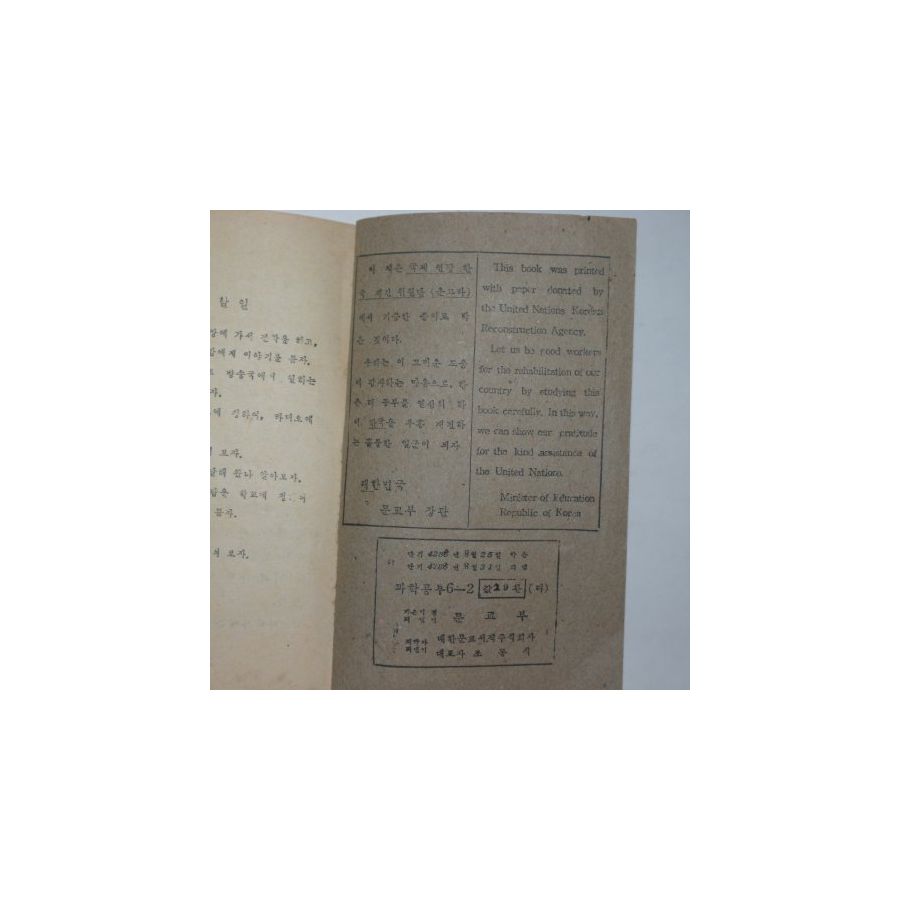 할 일
에 가서 견학을 하고,
에게 이야기를 듣자.
방송국에서 일하는
자.
에 관하여, 라디오에
보자.
알아보자.
학교에
듣자.
보자.
이 책은 국제 연합 한
국 재건 위원단 (운끄라)
에서 기증한 종이로 박
은 것이다.
우리는 이 고마운 도움
에 감사하는 마음으로, 한
층 더 공부를 열심히 하
여 한국을 부흥 재건하
는 훌륭한 일군이 되자
대한민국
문교부 장관
This book was printed
with paper donated by
the United Nations Korean
Reconstruction Agency.
Let us be good workers
for the rehabilitation of our
country by studying this
book carefully. In this way,
we can show our gratitude
for the kind assistance of
the United Nations.
Minister of Education
Republic of Korea
단기 4288 년 8월 25일 박음
단기 4288 년 8월 31일 펴냄
과학공부6—2 값 29환
지은이 겸
펴낸이 문교부
대한문교서적주식회사
대표자 조 동 식